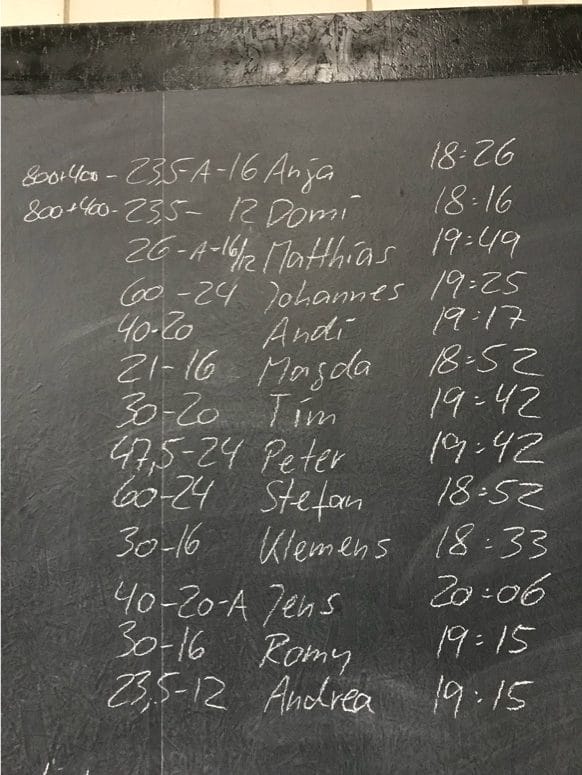 800+400 - 23,5-A-16 Anja 18:26
800+400 - 23,5- 12 Domi 18:16
26-A-16/12 Matthias 19:49
60-24 Johannes 19:25
40-20 Andi 19:17
21-16 Magda 18:52
30-20 Tim 19:42
47,5-24 Peter 19:42
60-24 Stefan 18:52
30-16 Klemens 18:33
40-20-A Jens 20:06
30-16 Romy 19:15
23,5-12 Andrea 19:15